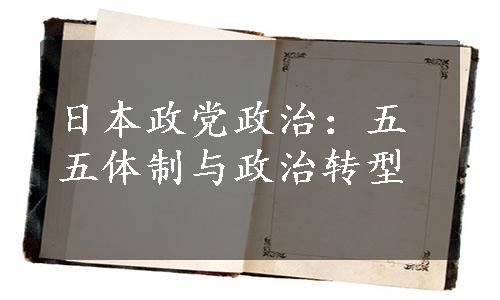 日本政党政治：五
五体制与政治转型